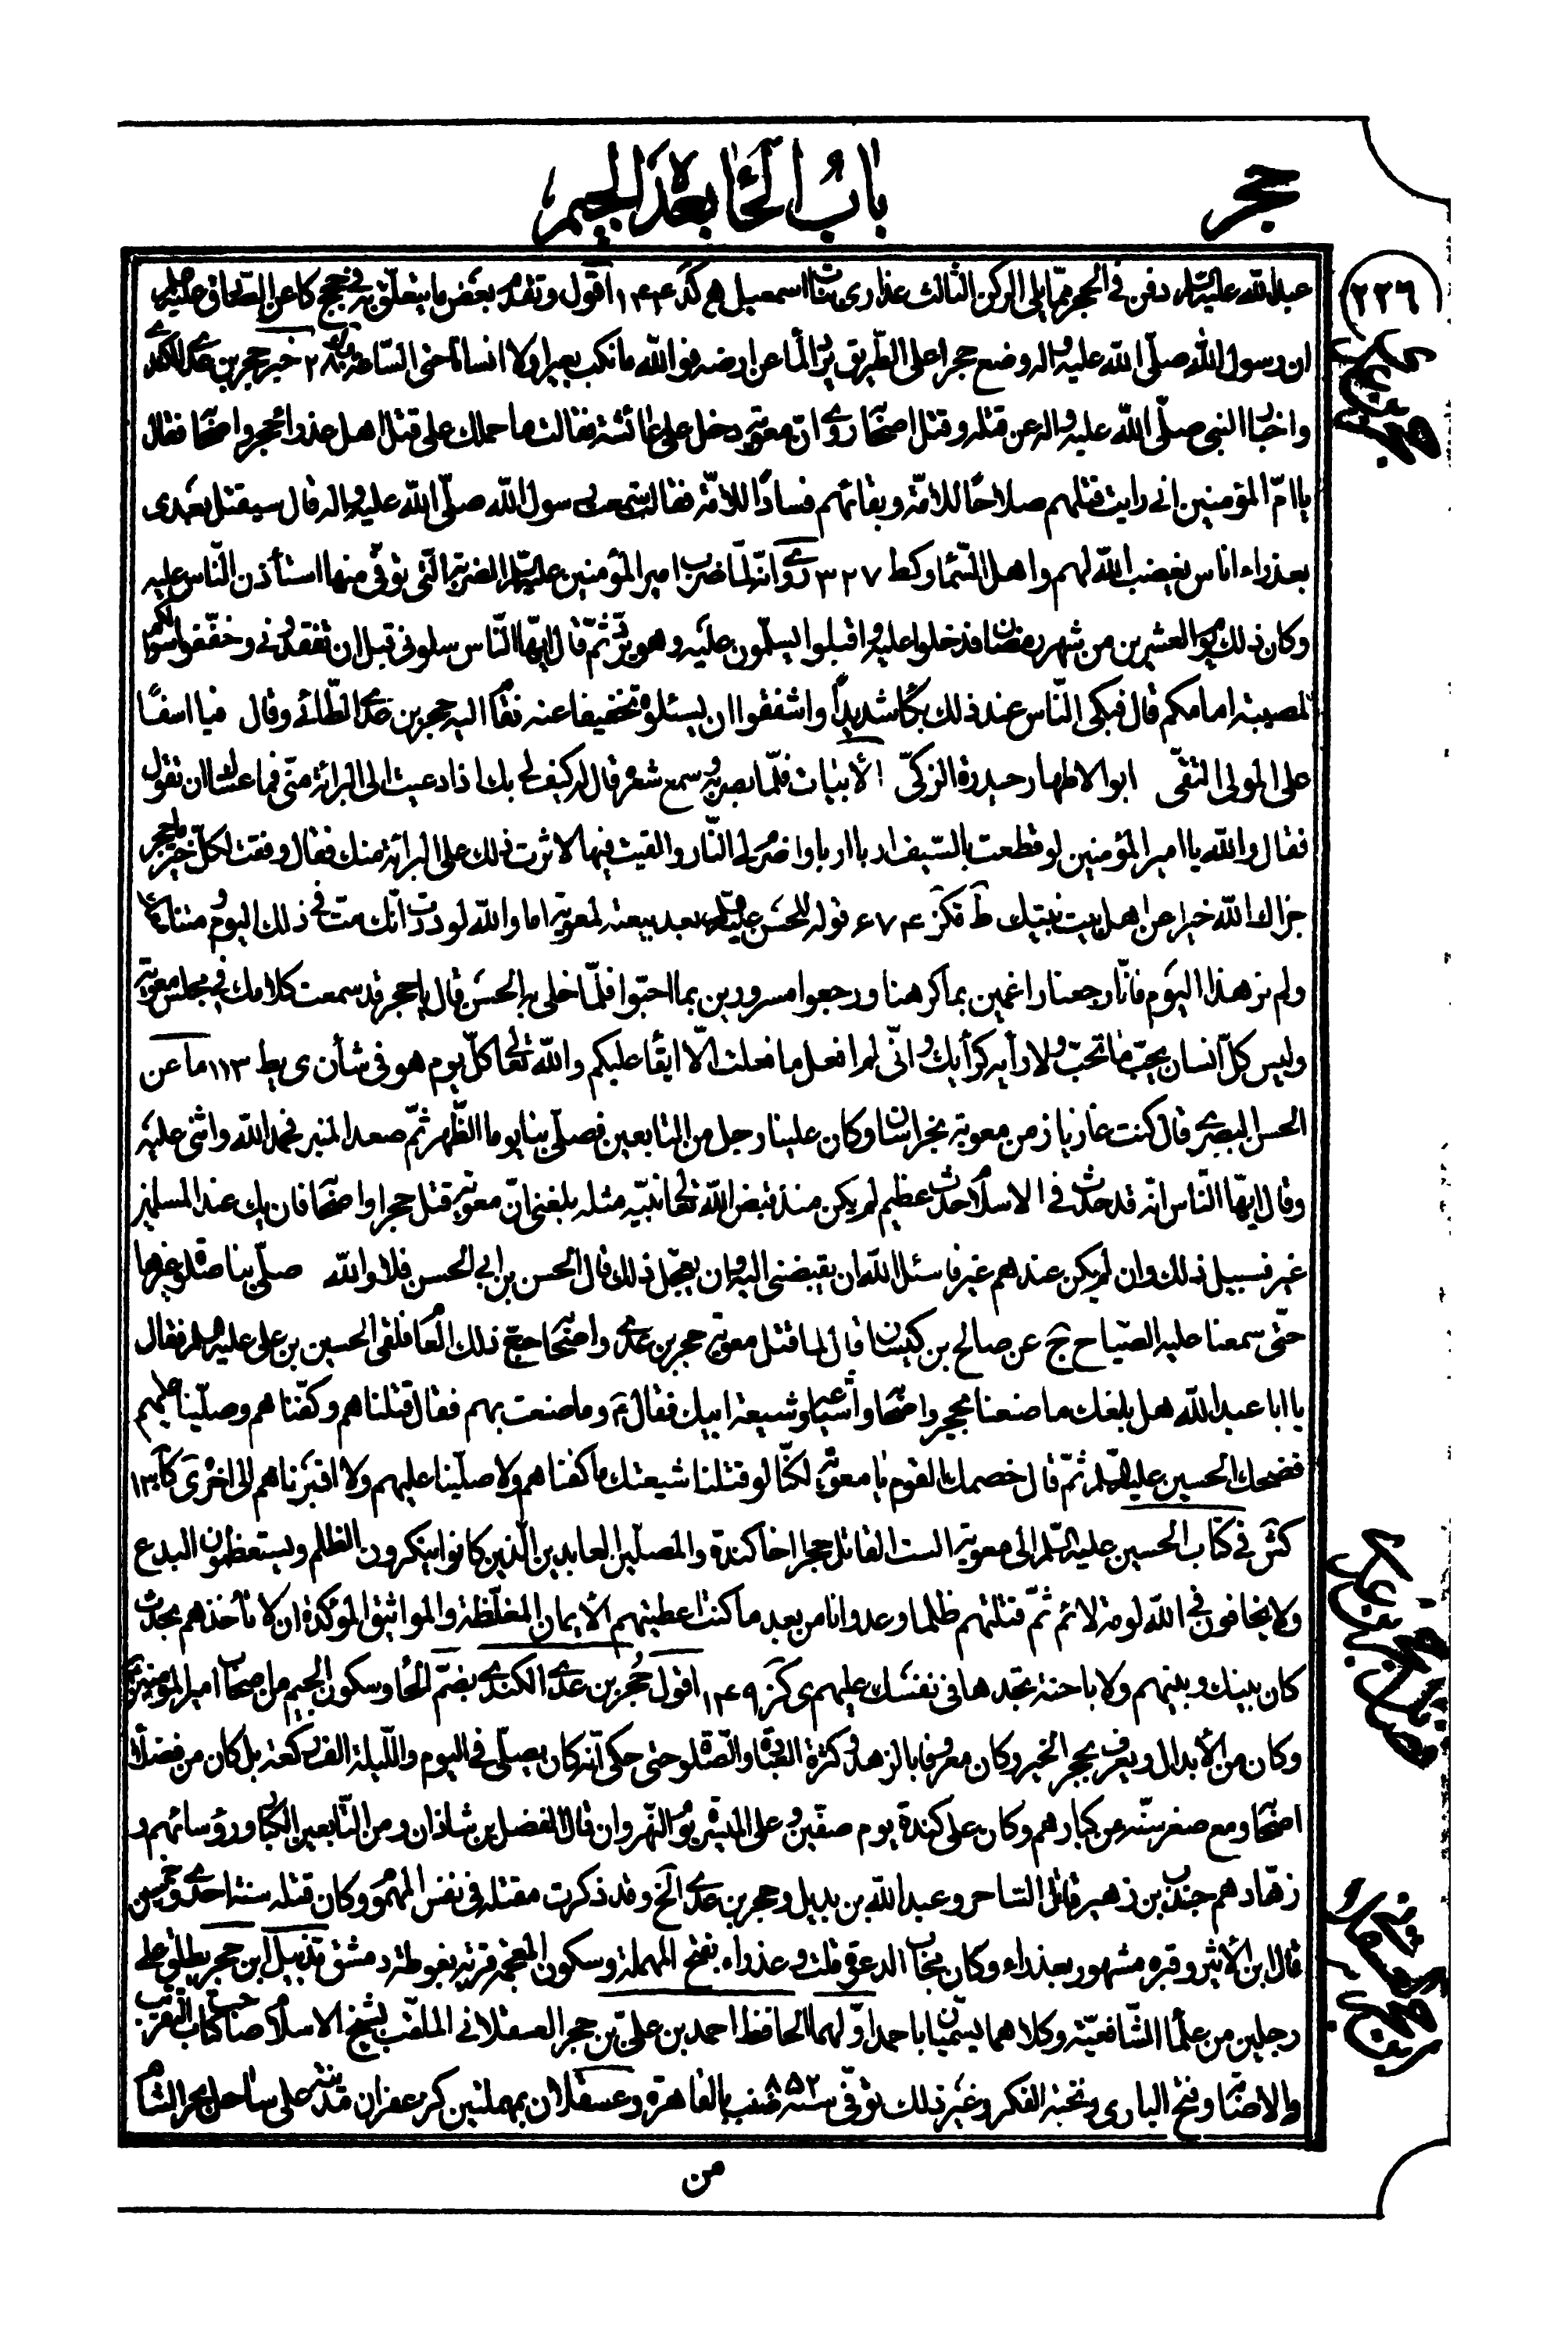 حجر
باب الحاء بعد الجيم
٢٢٦
عبد الله عليه السلام دفن في الحجر مما يلي الركن الثالث عذارى بنات اسمعيل هـ كد ١٤٤ اقول وتقدم بعض ما يتعلق به في حجج كا عن الصادق عليه السلام
ان رسول الله صلى الله عليه واله وضع حجرا على الطريق يرد الماء عن ارضه فوالله ما نكب بعيرا ولا انسانا حتى الساعة ٢٨ خبر حجر بن عدي الكندي
واخبار النبي صلى الله عليه واله عن قتله وقتل اصحابه روي ان معوية دخل على عائشة فقالت ما حملك على قتل اهل عذراء حجر واصحابه فقال
يا ام المؤمنين اني رايت قتلهم صلاحًا للامة وبقائهم فسادًا للامة فقالت سمعت رسول الله صلى الله عليه واله قال سيقتل بعدى
بعذراء اناس يغضب الله لهم واهل السماء وكط ٣٢٧ روي انه لما ضرب امير المؤمنين عليه السلام الضربة التي توفي منها استأذن الناس عليه
وكان ذلك يوم العشرين من شهر رمضان فدخلوا عليه واقبلوا يسلمون عليه وهو يرد ثم قال ايها الناس سلوني قبل ان تفقدوني وخففوا سؤالكم
لمصيبة امامكم قال فبكى الناس عند ذلك بكاء شديدًا واشفقوا ان يسئلوه تخفيفا عنه فقام اليه حجر بن عدي الطائي وقال فيا اسفًا
على المولى التقى ابو الاطهار حيدرة الزكيّ الابيات فلما بصر به وسمع شعره قال له كيف لي بك اذا دعيت الى البرائة منى فما عساك ان تقول
فقال والله يا امير المؤمنين لو قطعت بالسيف اربا اربا واضرم لي النار والقيت فيها لاثرت ذلك على البرائة منك فقال وفقت لكل خير يا حجر
جزاك الله خيرا عن اهل بيت نبيك ط قكز ٦٧٤ قوله للحسن عليه السلام بعد بيعته لمعوية اما والله لوددت انك مت في ذلك اليوم ومتنا معك
ولم نر هذا اليوم فانا رجعنا راغمين بما كرهنا ورجعوا مسرورين بما احبوا فلما خلى به الحسن قال يا حجر قد سمعت كلامك في مجلس معوية
وليس كل انسان يحب ما تحب ولا رأيه كرأيك واني لم افعل ما فعلت الا ابقاء عليكم والله تعالى كل يوم هو في شأن ى يط ١١٣ ما عن
الحسن البصري قال كنت غازيا زمن معوية بخراسان وكان علينا رجل من التابعين فصلى بنا يوما الظهر ثم صعد المنبر فحمد الله واثنى عليه
وقال ايها الناس انه قد حدث في الاسلام حدث عظيم لم يكن منذ قبض الله تعالى نبيه مثله بلغني ان معوية قتل حجرا واصحابه فان يك عند المسلمين
غير فسبيل ذلك وان لم يكن عندهم غير فاسئل الله ان يقبضنى اليه وان يعجل ذلك قال الحسن بن ابي الحسن فلا والله صلى بنا صلوة غيرها
حتى سمعنا عليه الصياح ج عن صالح بن كيسان قال لما قتل معوية حجر بن عدي واصحابه حج ذلك العام فلقى الحسين بن علي عليه السلام فقال
يا ابا عبد الله هل بلغك ما صنعنا بحجر واصحابه واشياعه وشيعة ابيك فقال ع وما صنعت بهم فقال قتلناهم وكفناهم وصلينا عليهم
فضحك الحسين عليه السلام ثم قال خصمك القوم يا معوية لكنا لو قتلنا شيعتك ما كفناهم ولا صلينا عليهم ولا اقبرناهم الى اخرى كا ١٣٠
كش في كتاب الحسين عليه السلام الى معوية الست القاتل حجرا اخا كندة والمصلين العابدين الذين كانوا ينكرون الظلم ويستعظمون البدع
ولا يخافون في الله لومة لائم ثم قتلتهم ظلما وعدوانا من بعد ما كنت اعطيتهم الايمان المغلظة والمواثيق المؤكدة ان لا تأخذهم بحدث
كان بينك وبينهم ولا باحنة تجدها في نفسك عليهم ى كز ١٤٩ اقول حجر بن عدي الكندي بضم الحاء وسكون الجيم من اصحاب امير المؤمنين ع
وكان من الابدال ويعرف بحجر الخير وكان معروفا بالزهد وكثرة العبادة والصلوة حتى حكي انه كان يصلى في اليوم والليلة الف ركعة بل كان من فضلاء
اصحابه ومع صغر سنه من كبارهم وكان على كندة يوم صفين وعلى الميسرة يوم النهروان قال الفضل بن شاذان ومن التابعين الكبار ورؤسائهم و
زهادهم جندب بن زهير قاتل الساحر وعبد الله بن بديل وحجر بن عدي الخ وقد ذكرت مقتله في نفس المهموم وكان قتله سنة احدى وخمسين
قال ابن الاثير وقبره مشهور بعذراء وكان مجاب الدعوة قلت وعذراء بفتح المهملة وسكون المعجمة قرية بغوطة دمشق تذييل ابن حجر يطلق على
رجلين من علماء الشافعية وكلاهما يسميان باحمد اولهما الحافظ احمد بن علي بن حجر العسقلاني الملقب بشيخ الاسلام صاحب كتاب التقريب
والاصابة وفتح الباري ونخبة الفكر وغير ذلك توفي سنة ٨٥٢ ضنب بالقاهرة وعسقلان بمهملتين كزعفران مدينة على ساحل بحر الشام
من